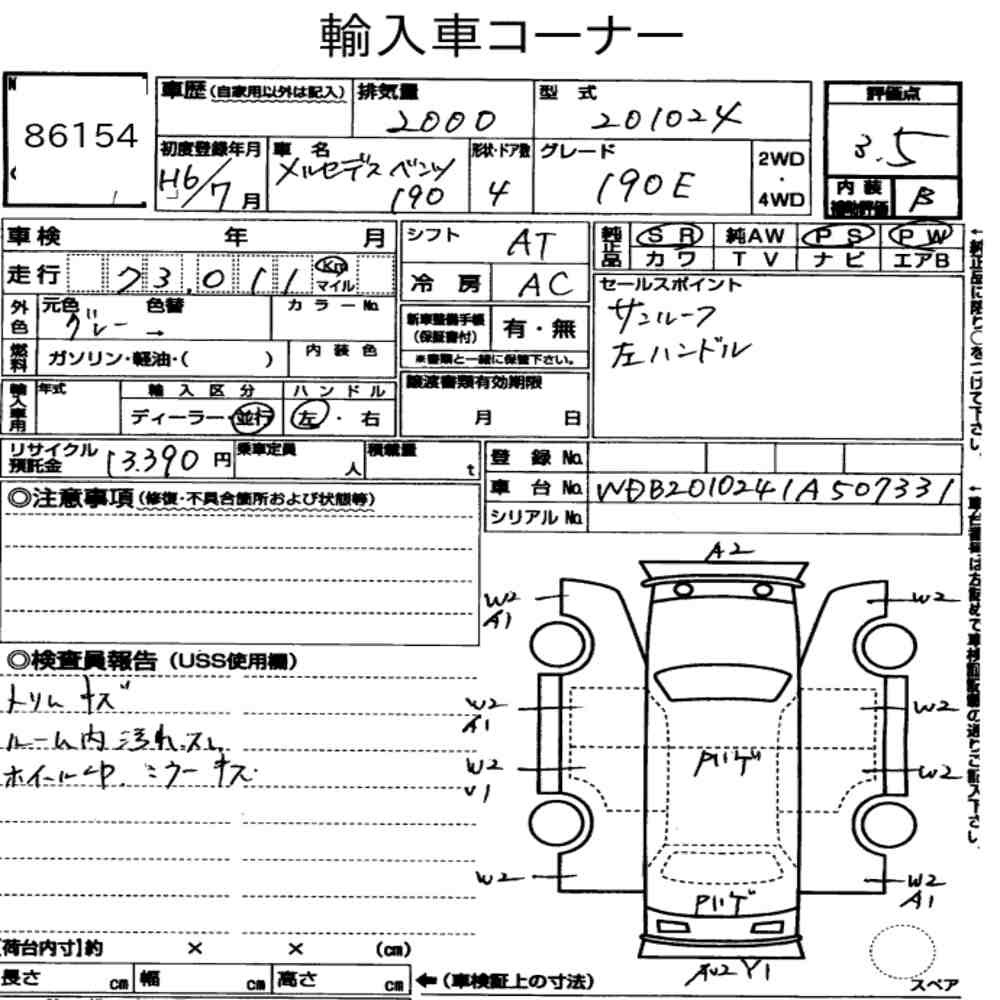 輸入車コーナー
86154
車歴 (自家用以外は記入)
排気量 2000
型式 201024
評価点 3.5
初度登録年月 H6/7月
車名 メルセデスベンツ 190
形状・ドア数 4
グレード 190E
2WD・4WD
内装補助評価 B
車検 年 月
シフト AT
純正品 SR 純AW PS PW
カワ TV ナビ エアB
走行 73,011 Km マイル
冷房 AC
セールスポイント
サンルーフ
左ハンドル
外色 元色 グレー → 色替 カラーNo.
新車整備手帳 (保証書付) 有・無
※書類と一緒に保管下さい。
燃料 ガソリン・軽油・( ) 内装色
輸入車用 年式 輸入区分 ハンドル
ディーラー・並行 左・右
譲渡書類有効期限
月 日
リサイクル預託金 13,390円 乗車定員 人 積載量 t
登録No.
車台No. WDB2010241A507331
シリアルNo.
◎注意事項 (修復・不具合箇所および状態等)
A2
W2
A1
W2
◎検査員報告 (USS使用欄)
トリムキズ
ルーム内汚れ.スレ
ホイール凹.ミラーキズ
W2
A1
W2
W2
V1
W2
Pハゲ
W2
W2
A1
Pハゲ
Y1
スペア
【荷台内寸】約 × × (cm)
長さ cm 幅 cm 高さ cm
←(車検証上の寸法)